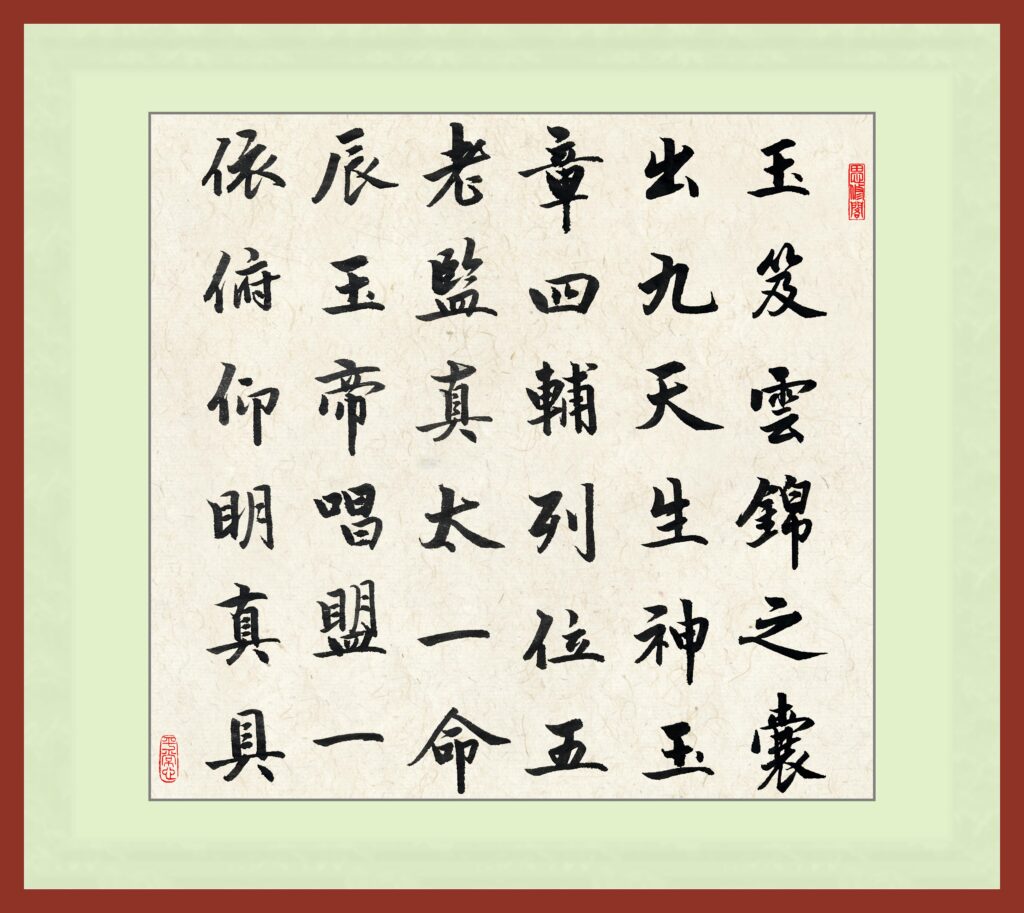 玉笈雲錦之囊
出九天生神玉
章四輔列位五
老監真太一命
辰玉帝唱盟一
依俯仰明真具
平常心